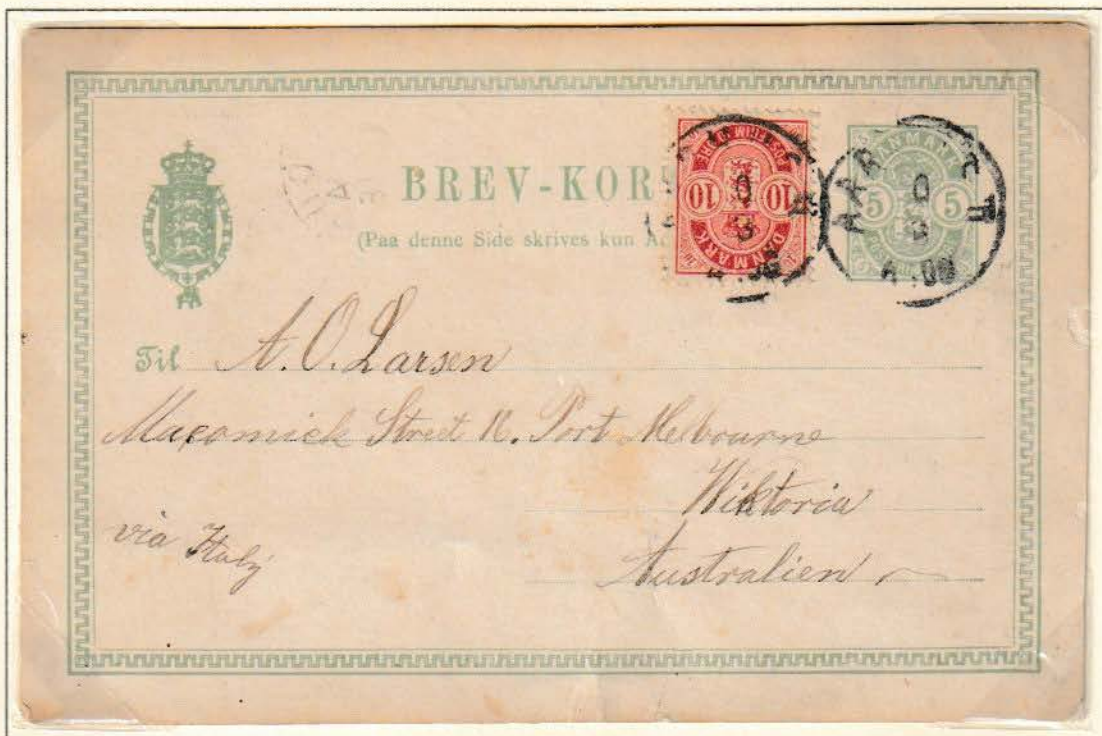 BREV-KOR
(Paa denne Side skrives kun A
10 10
DANMARK
5 5
AAR
Til A. O. Larsen
Macomick Street 18. Port Melbourne
Wiktoria
via Italy
Australien